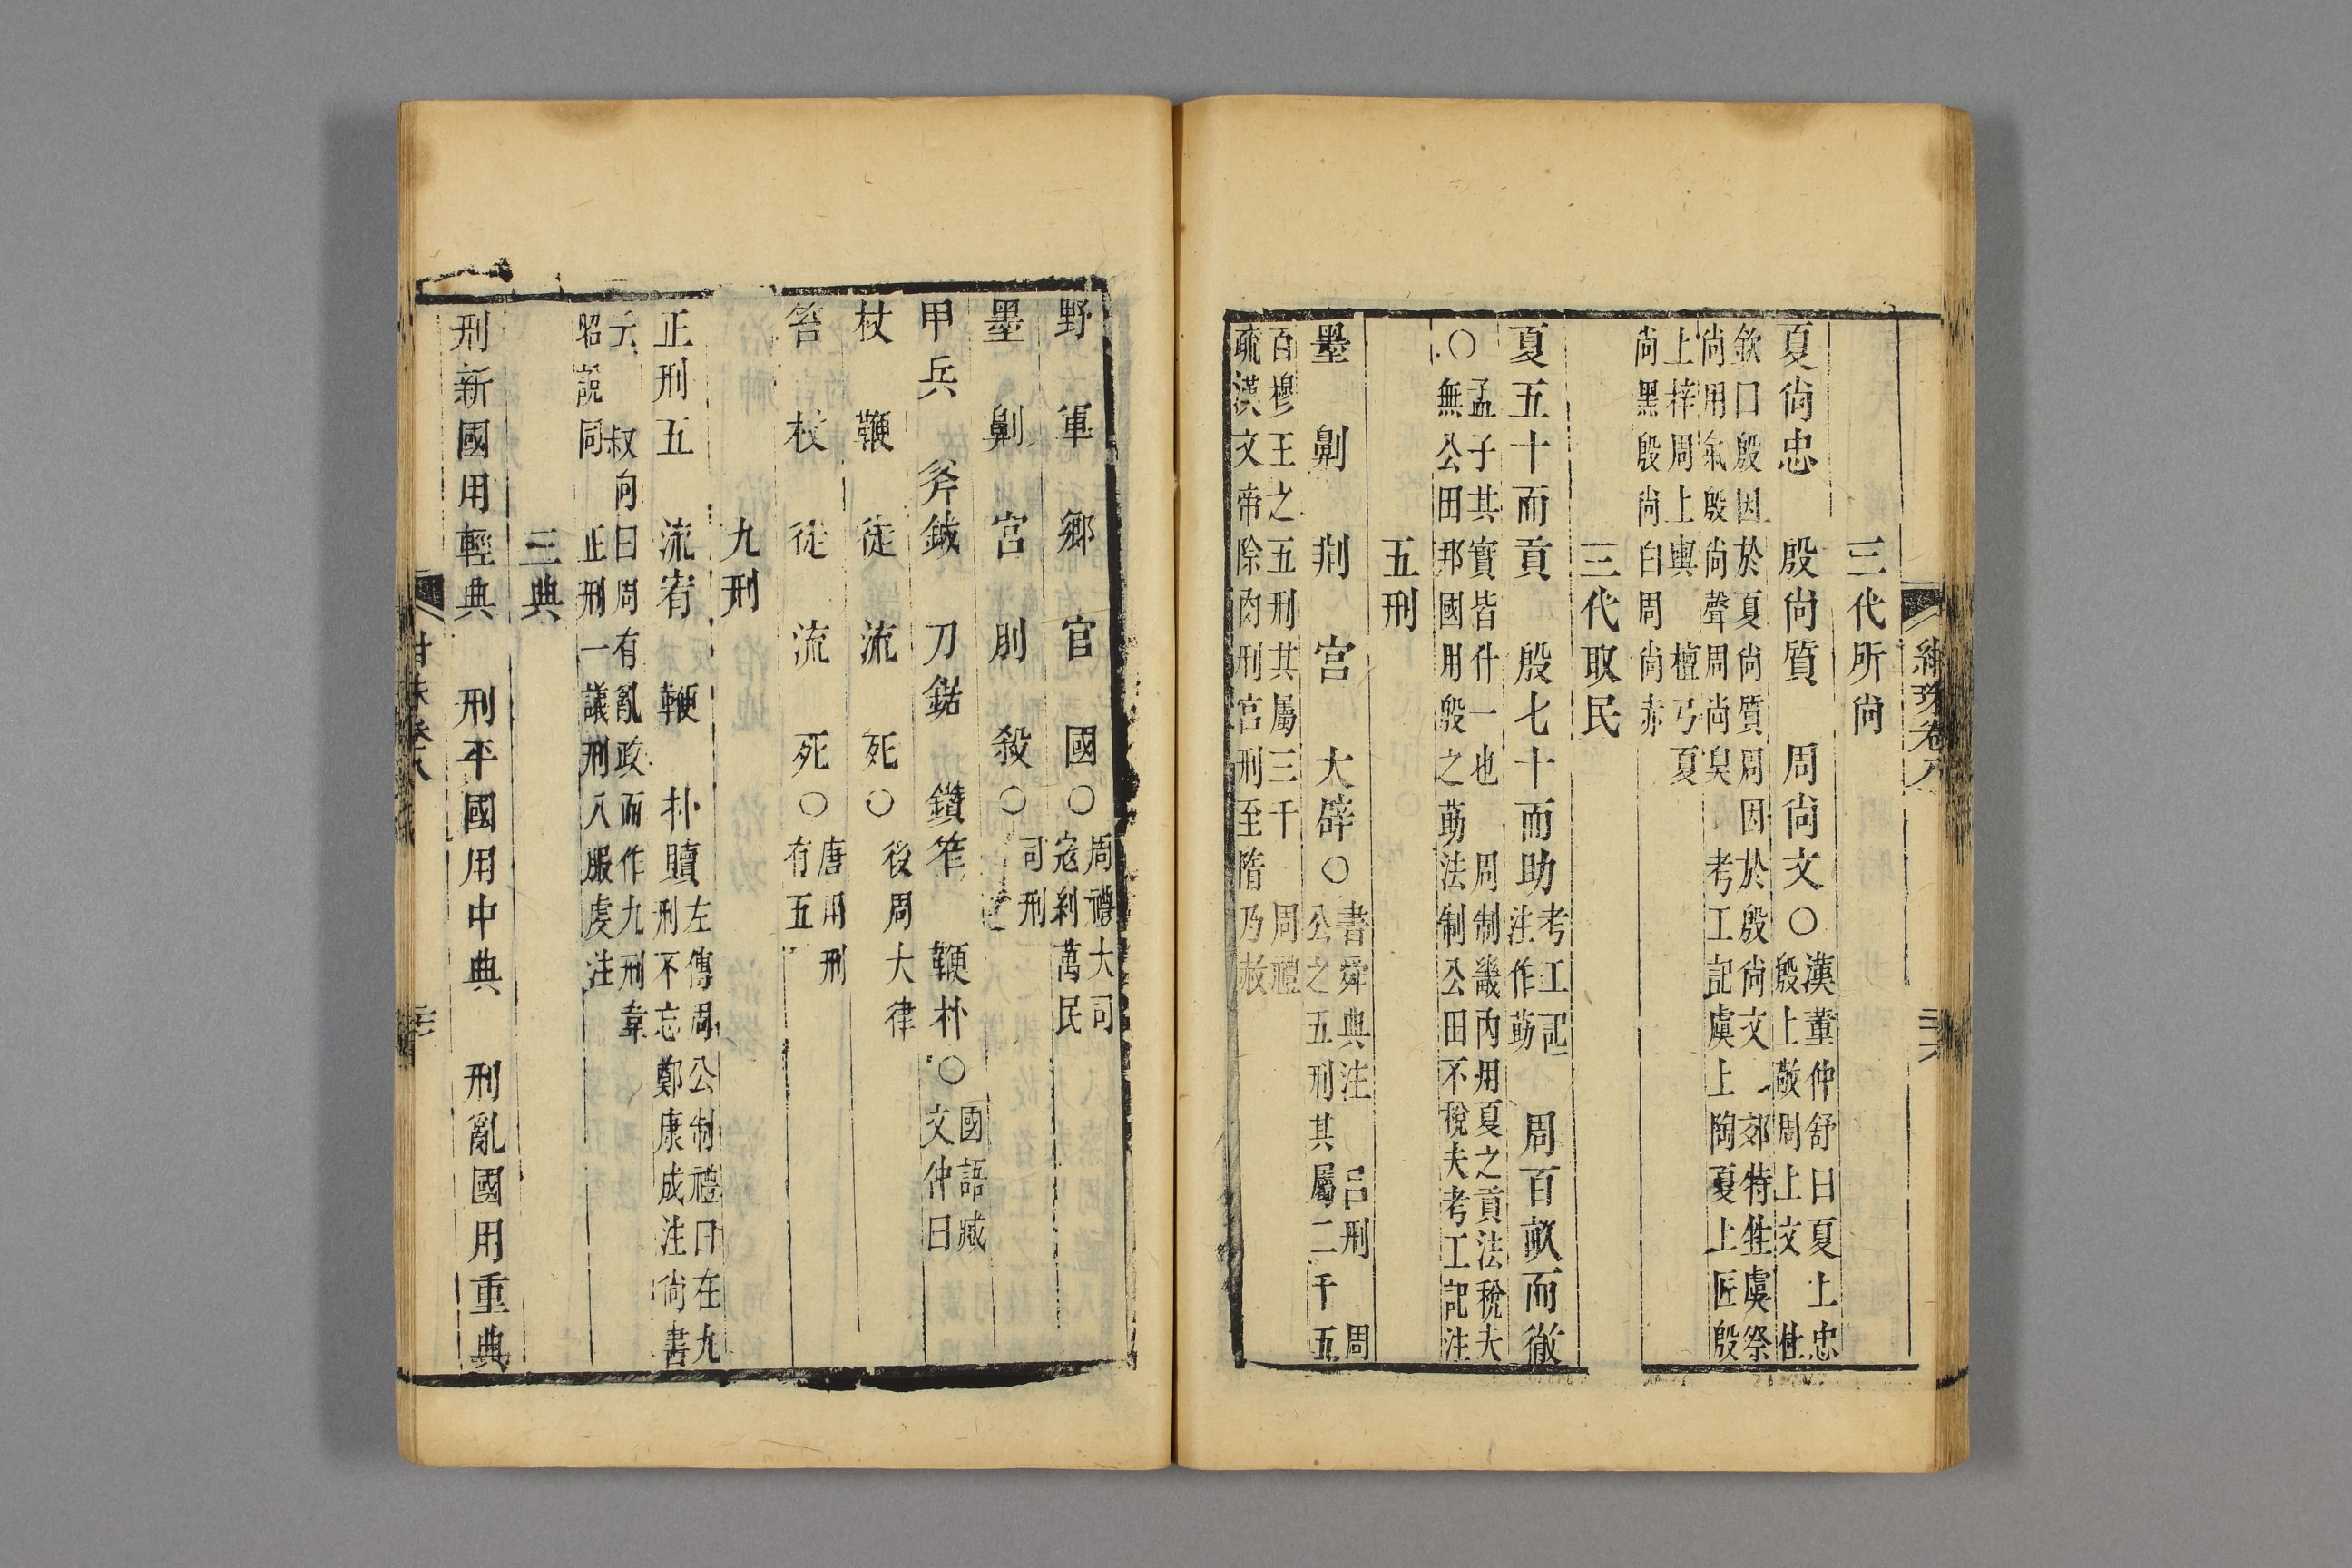 三代所尚
夏尙忠　殷尙質　周尙文○漢董仲舒曰夏上忠
殷上敬周上文 仕
欽曰殷因於夏尙質周因於殷尙文 郊特牲虞祭
尙用氣殷尙聲周尙臭　考工記虞上陶夏上匠殷
上梓周上輿　檀弓夏
尙黑殷尙白周尙赤
三代取民
夏五十而貢　殷七十而助考工記
注作莇　周百畝而徹
○孟子其實皆什一也　周制畿內用夏之貢法稅夫
無公田邦國用殷之莇法制公田不稅夫考工記注
五刑
墨　劓　剕　宮　大辟○書舜典注　呂刑　周
公之五刑其屬二千五
百穆王之五刑其屬三千　周禮
疏漢文帝除肉刑宮刑至隋乃赦
野　軍　鄉　官　國○周禮大司
寇糾萬民
墨　劓　宮　刖　殺○司刑
甲兵　斧鉞　刀鋸　鑽笮　鞭朴○國語臧
文仲曰
杖　鞭　徒　流　死○後周大律
笞　杖　徒　流　死○唐用刑
有五
九刑
正刑五　流宥　鞭　朴　贖左傳周公制禮曰在九
刑不忘鄭康成注尙書
云　叔向曰周有亂政而作九刑韋
昭說同　正刑一議刑八服虔注
三典
刑新國用輕典　刑平國用中典　刑亂國用重典